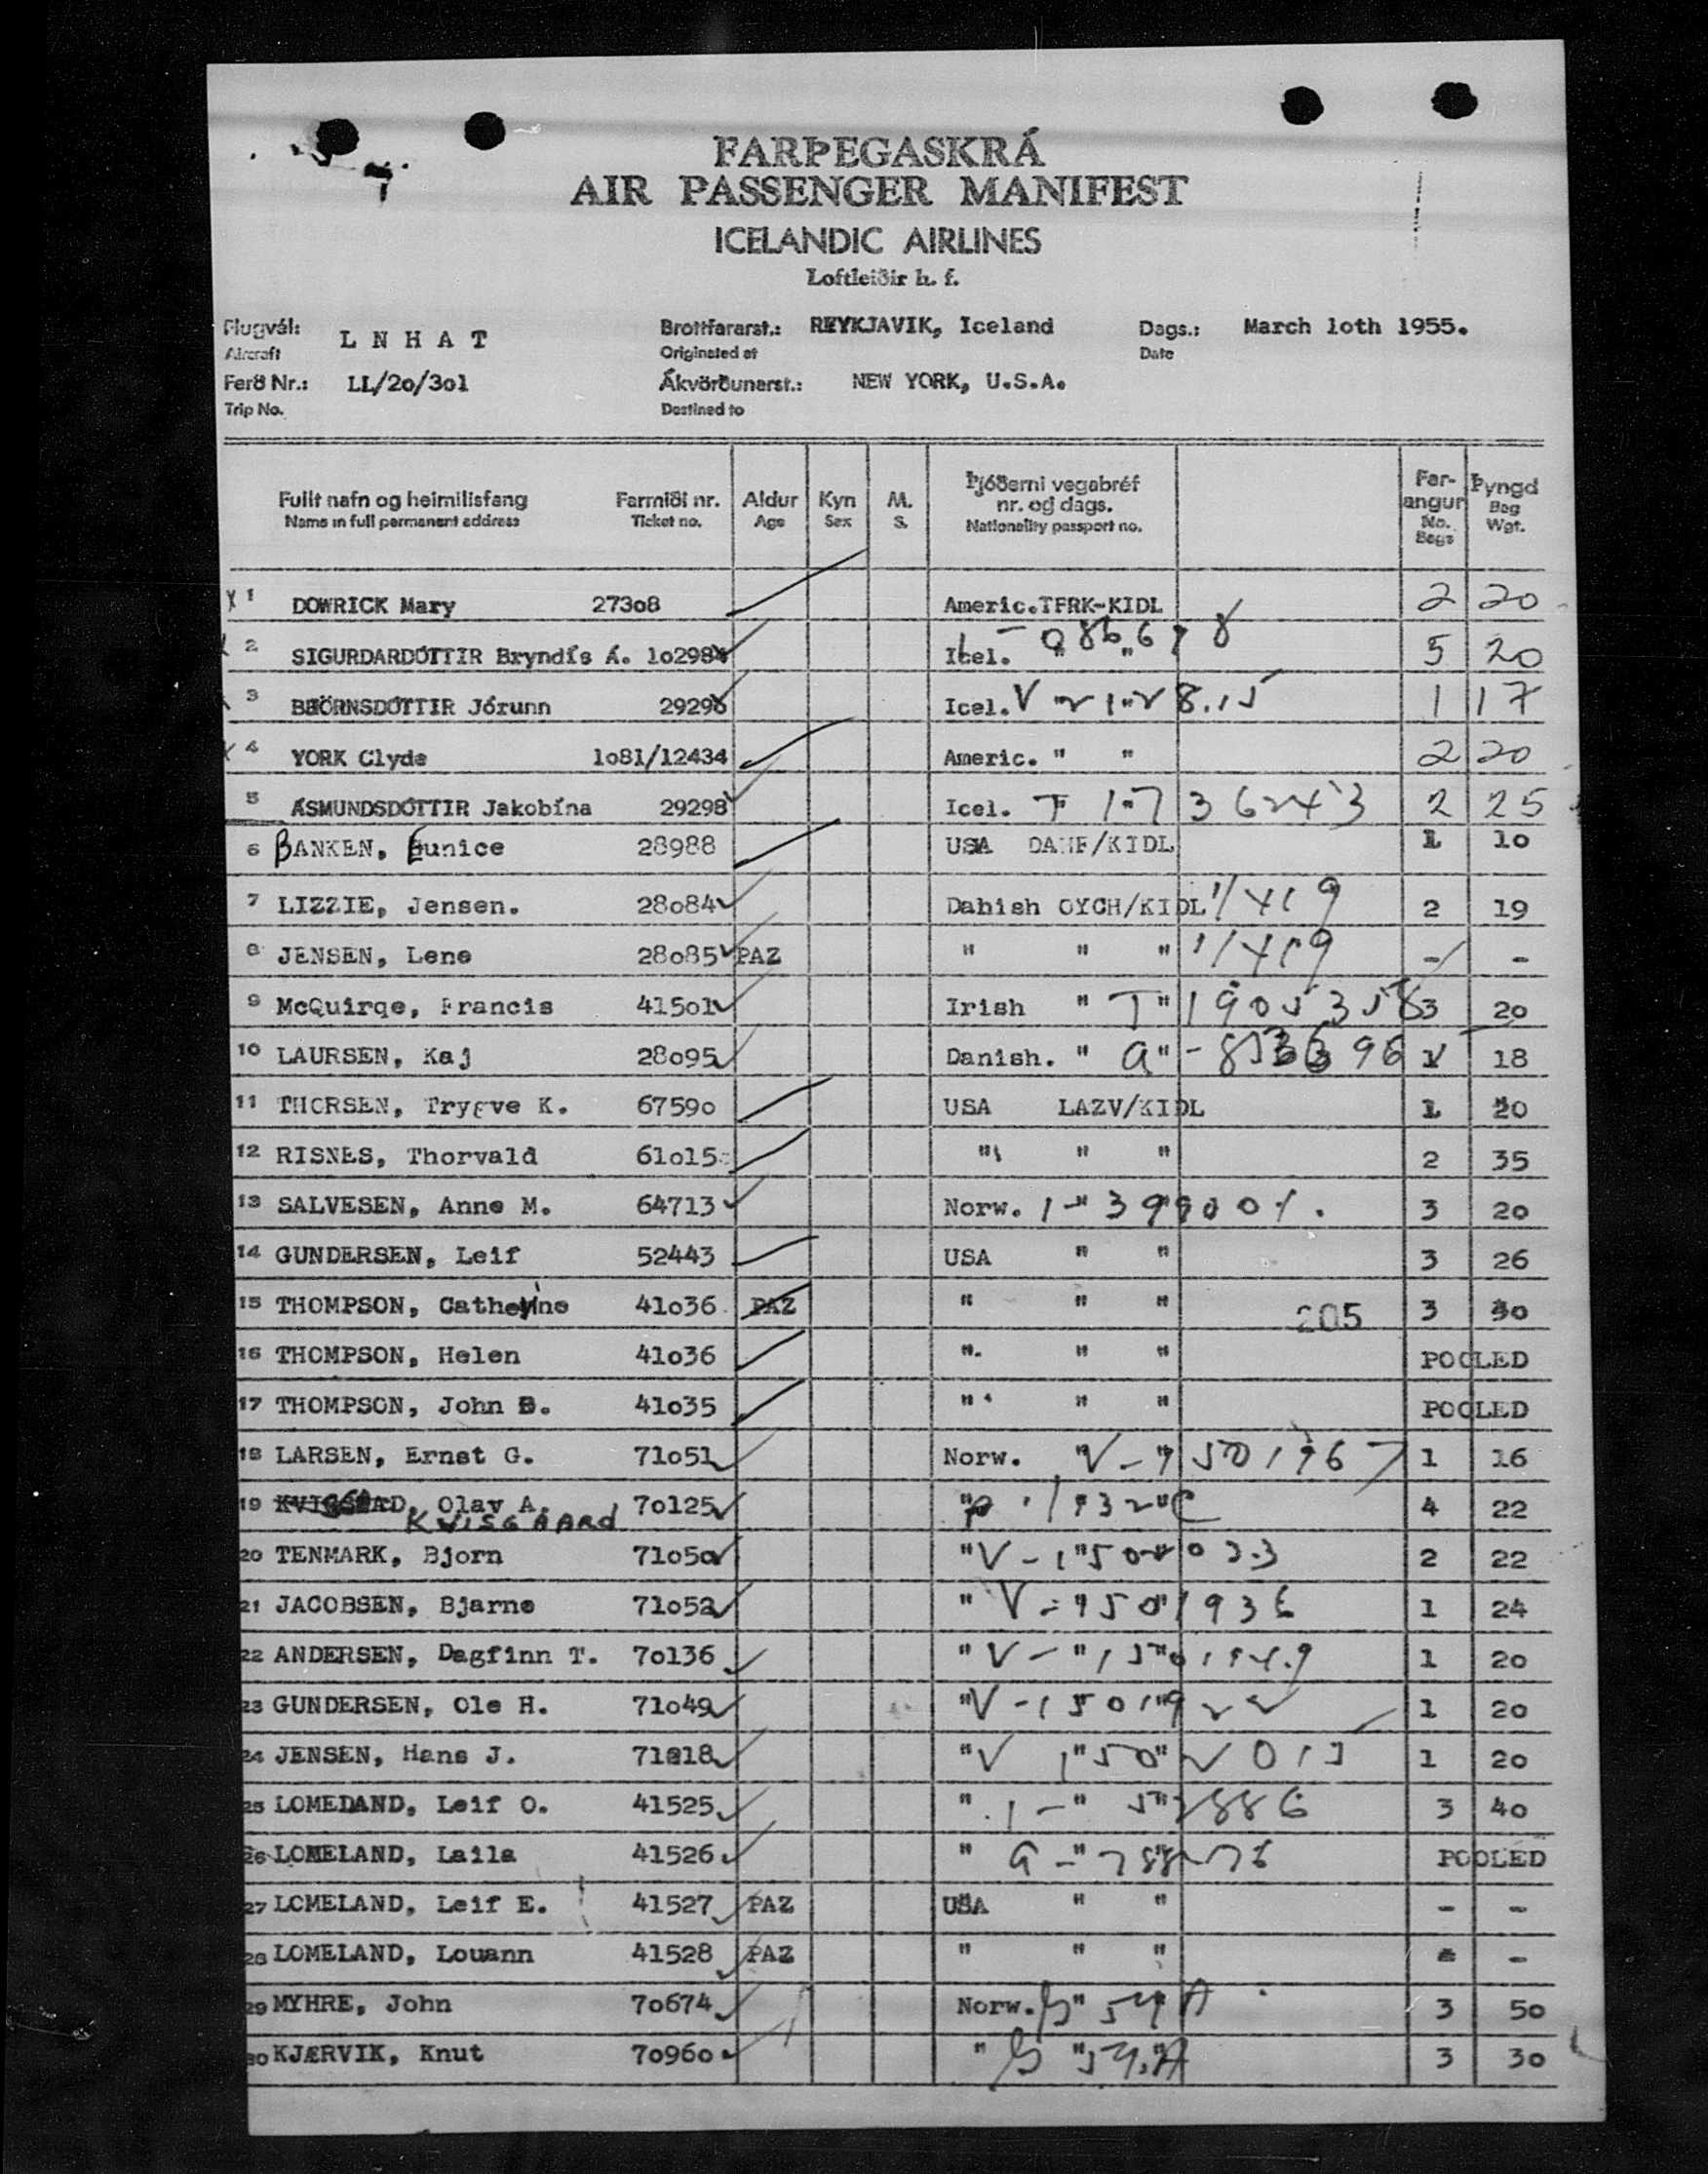 FARÞEGASKRÁ
AIR PASSENGER MANIFEST
ICELANDIC AIRLINES
Loftleiðir h. f.
Flugvél: L N H A T Brottfararst.: REYKJAVIK, Iceland Dags.: March loth 1955.
Aircraft Originated at Date
Ferð Nr.: LL/2o/3o1 Ákvörðunarst.: NEW YORK, U.S.A.
Trip No. Destined to
Fullt nafn og heimilisfang Farmiði nr. Aldur Kyn M. Þjóðerni vegabréf nr. og dags. Far-angur Þyngd
Name in full permanent address Ticket no. Age Sex S. Nationality passport no. No. Bags Bag Wgt.
X 1 DOWRICK Mary 273o8 Americ. TFRK-KIDL 2 20
2 SIGURDARDÓTTIR Bryndís Á. 1o2984 Icel. " " 5 20
3 BJÖRNSDÓTTIR Jórunn 29296 Icel. 1 17
X 4 YORK Clyde 1o81/12434 Americ. " " 2 20
5 ÁSMUNDSDÓTTIR Jakobína 29298 Icel. 2 25
6 BANKEN, Eunice 28988 USA DANF/KIDL 1 1o
7 LIZZIE, Jensen. 28o84 Danish OYCH/KIDL 11419 2 19
8 JENSEN, Lene 28o85 PAZ " " " 11419 - -
9 McQuirqe, Francis 415o1 Irish " " 3 2o
10 LAURSEN, Kaj 28o95 Danish. " " 1 18
11 THORSEN, Trygve K. 6759o USA LAZV/KIDL 1 2o
12 RISNES, Thorvald 61o15 " " " 2 35
13 SALVESEN, Anne M. 64713 Norw. 3 2o
14 GUNDERSEN, Leif 52443 USA " " 3 26
15 THOMPSON, Catheyine 41o36 PAZ " " " 205 3 3o
16 THOMPSON, Helen 41o36 " " " POOLED
17 THOMPSON, John B. 41o35 " " " POOLED
18 LARSEN, Ernst G. 71o51 Norw. 1 16
19 KVISGAARD, Olav A. 7o125 4 22
KVISGAARd
20 TENMARK, Bjorn 71o5o " 2 22
21 JACOBSEN, Bjarne 71o52 " 1 24
22 ANDERSEN, Dagfinn T. 7o136 " 1 2o
23 GUNDERSEN, Ole H. 71o49 " V-1501922 1 2o
24 JENSEN, Hans J. 71218 " 1 2o
25 LOMEDAND, Leif O. 41525 " 3 4o
26 LOMELAND, Laila 41526 " POOLED
27 LOMELAND, Leif E. 41527 PAZ USA " " - -
28 LOMELAND, Louann 41528 PAZ " " " - -
29 MYHRE, John 7o674 Norw. 3 5o
30 KJÆRVIK, Knut 7o96o " 3 3o